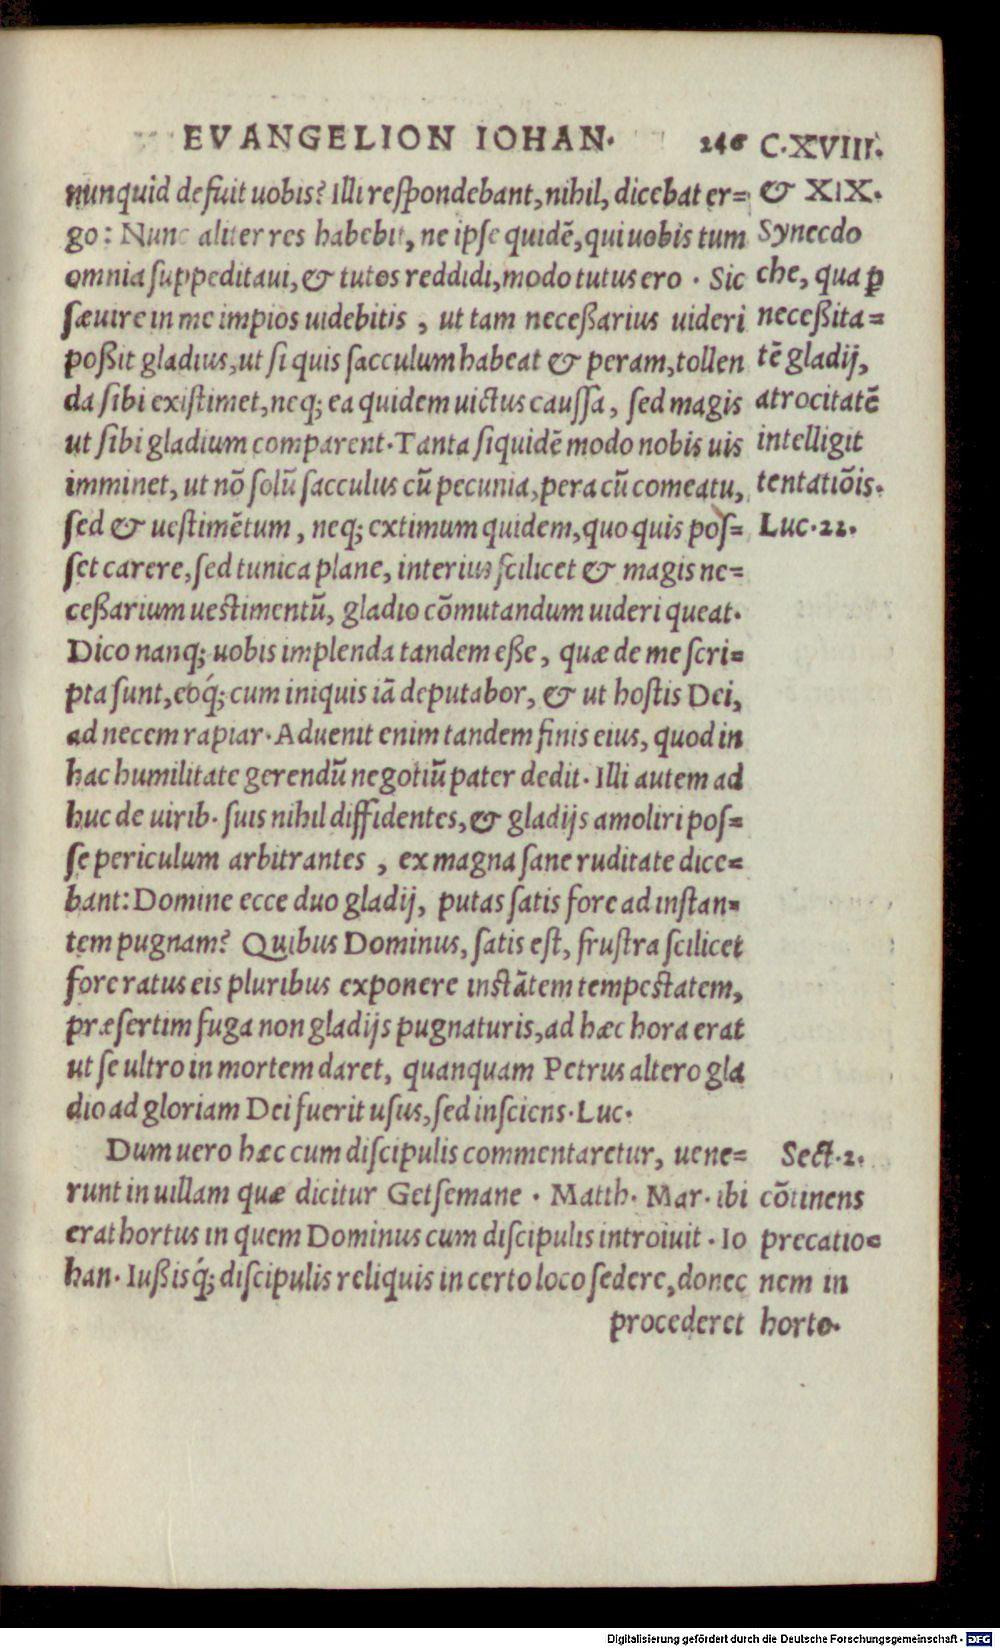 EVANGELION IOHAN. 246 C.XVIII.
& XIX.
nunquid defuit uobis? Illi respondebant, nihil, dicebat er=
go: Nunc aliter res habebit, ne ipse quidē, qui uobis tum
omnia suppeditaui, & tutos reddidi, modo tutus ero. Sic
sæuire in me impios uidebitis, ut tam neceßarius uideri
poßit gladius, ut si quis sacculum habeat & peram, tollen
da sibi existimet, neq; ea quidem uictus caussa, sed magis
ut sibi gladium comparent. Tanta siquidē modo nobis uis
imminet, ut nō solū sacculus cū pecunia, pera cū comeatu,
sed & uestimētum, neq; extimum quidem, quo quis pos=
set carere, sed tunica plane, interius scilicet & magis ne=
ceßarium uestimentū, gladio cōmutandum uideri queat.
Dico nanq; uobis implenda tandem eße, quæ de me scri=
pta sunt, eoq́; cum iniquis iā deputabor, & ut hostis Dei,
ad necem rapiar. Aduenit enim tandem finis eius, quod in
hac humilitate gerendū negotiū pater dedit. Illi autem ad
huc de uirib. suis nihil diffidentes, & gladijs amoliri pos=
se periculum arbitrantes, ex magna sane ruditate dice=
bant: Domine ecce duo gladij, putas satis fore ad instan=
tem pugnam? Quibus Dominus, satis est, frustra scilicet
fore ratus eis pluribus exponere instātem tempestatem,
præsertim fuga non gladijs pugnaturis, ad hæc hora erat
ut se ultro in mortem daret, quanquam Petrus altero gla
dio ad gloriam Dei fuerit usus, sed insciens. Luc.
Dum uero hæc cum discipulis commentaretur, uene=
runt in uillam quæ dicitur Getsemane. Matth. Mar. ibi
erat hortus in quem Dominus cum discipulis introiuit. Io
han. Iußisq́; discipulis reliquis in certo loco sedere, donec
procederet
Synecdo
che, qua ꝑ
neceßita=
tē gladij,
atrocitatē
intelligit
tentatiōis.
Luc. 22.
Sect. 2.
cōtinens
precatio=
nem in
horto.
Digitalisierung gefördert durch die Deutsche Forschungsgemeinschaft - DFG